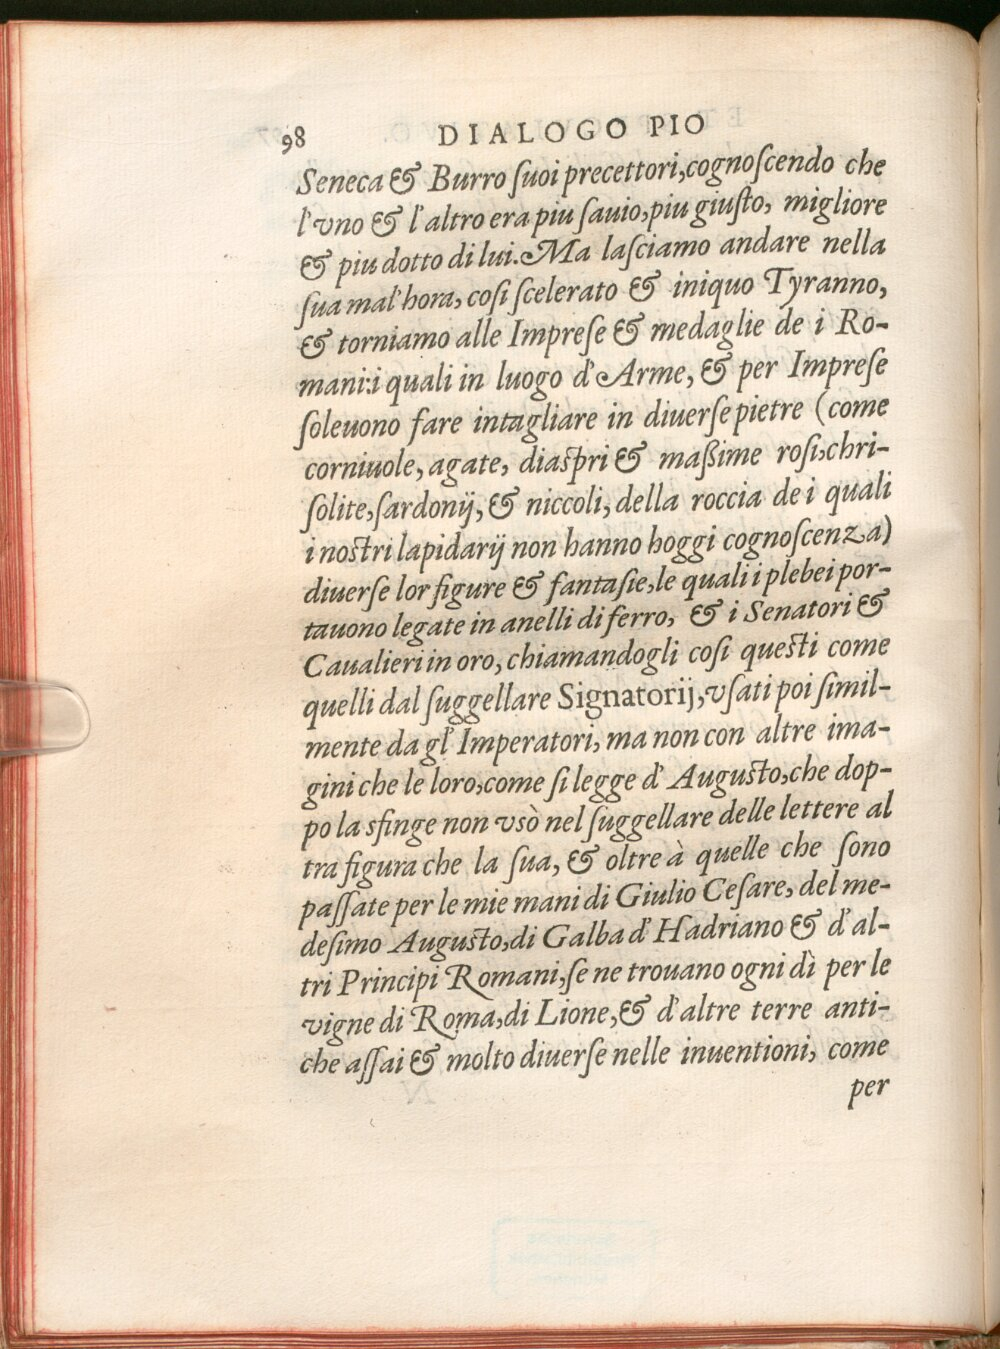 98 DIALOGO PIO
Seneca & Burro ſuoi precettori,cognoſcendo che
l'vno & l'altro era piu ſauio,piu giuſto, migliore
& piu dotto di lui.Ma laſciamo andare nella
ſua mal'hora, coſi ſcelerato & iniquo Tyranno,
& torniamo alle Impreſe & medaglie de i Ro-
mani:i quali in luogo d'Arme, & per Impreſe
ſoleuono fare intagliare in diuerſe pietre (come
corniuole, agate, diaſpri & maßime roſi,chri-
ſolite,ſardonij, & niccoli, della roccia de i quali
i noſtri lapidarij non hanno hoggi cognoſcenza)
diuerſe lor figure & fantaſie,le quali i plebei por-
tauono legate in anelli di ferro, & i Senatori &
Caualieri in oro, chiamandogli coſi queſti come
quelli dal ſuggellare Signatorij,vſati poi ſimil-
mente da gl'Imperatori, ma non con altre ima-
gini che le loro,come ſi legge d'Auguſto,che dop-
po la sfinge non vsò nel ſuggellare delle lettere al
tra figura che la ſua, & oltre à quelle che ſono
paſſate per le mie mani di Giulio Ceſare, del me-
deſimo Auguſto,di Galba d'Hadriano & d'al-
tri Principi Romani,ſe ne trouano ogni dì per le
vigne di Roma,di Lione,& d'altre terre anti-
che aſſai & molto diuerſe nelle inuentioni, come
per